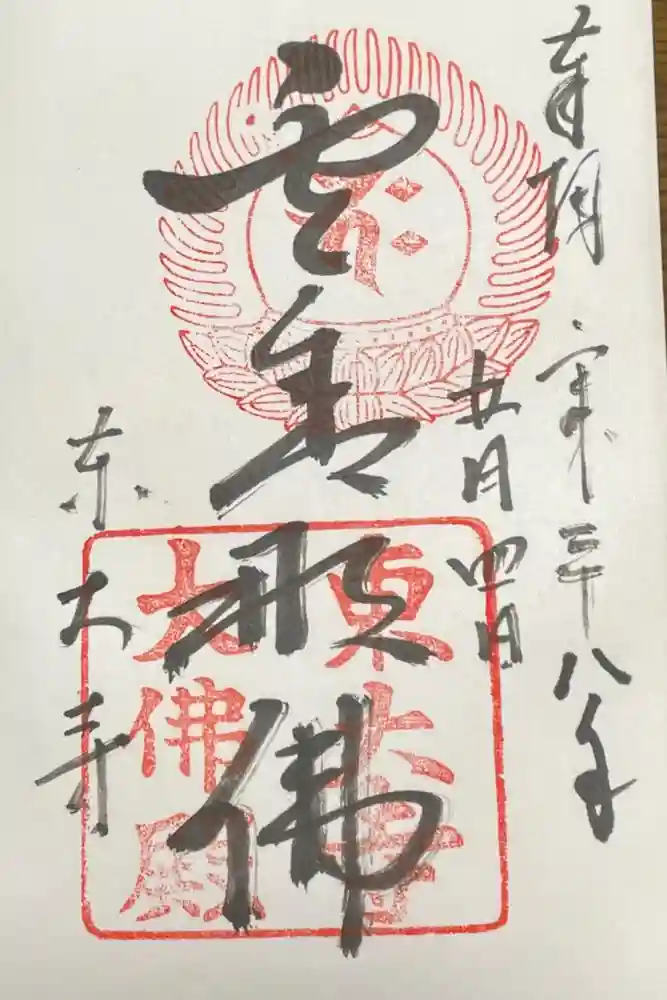 奉拝
平成二十八年
五月四日
盧舎那佛
東大寺
東大寺
大佛殿